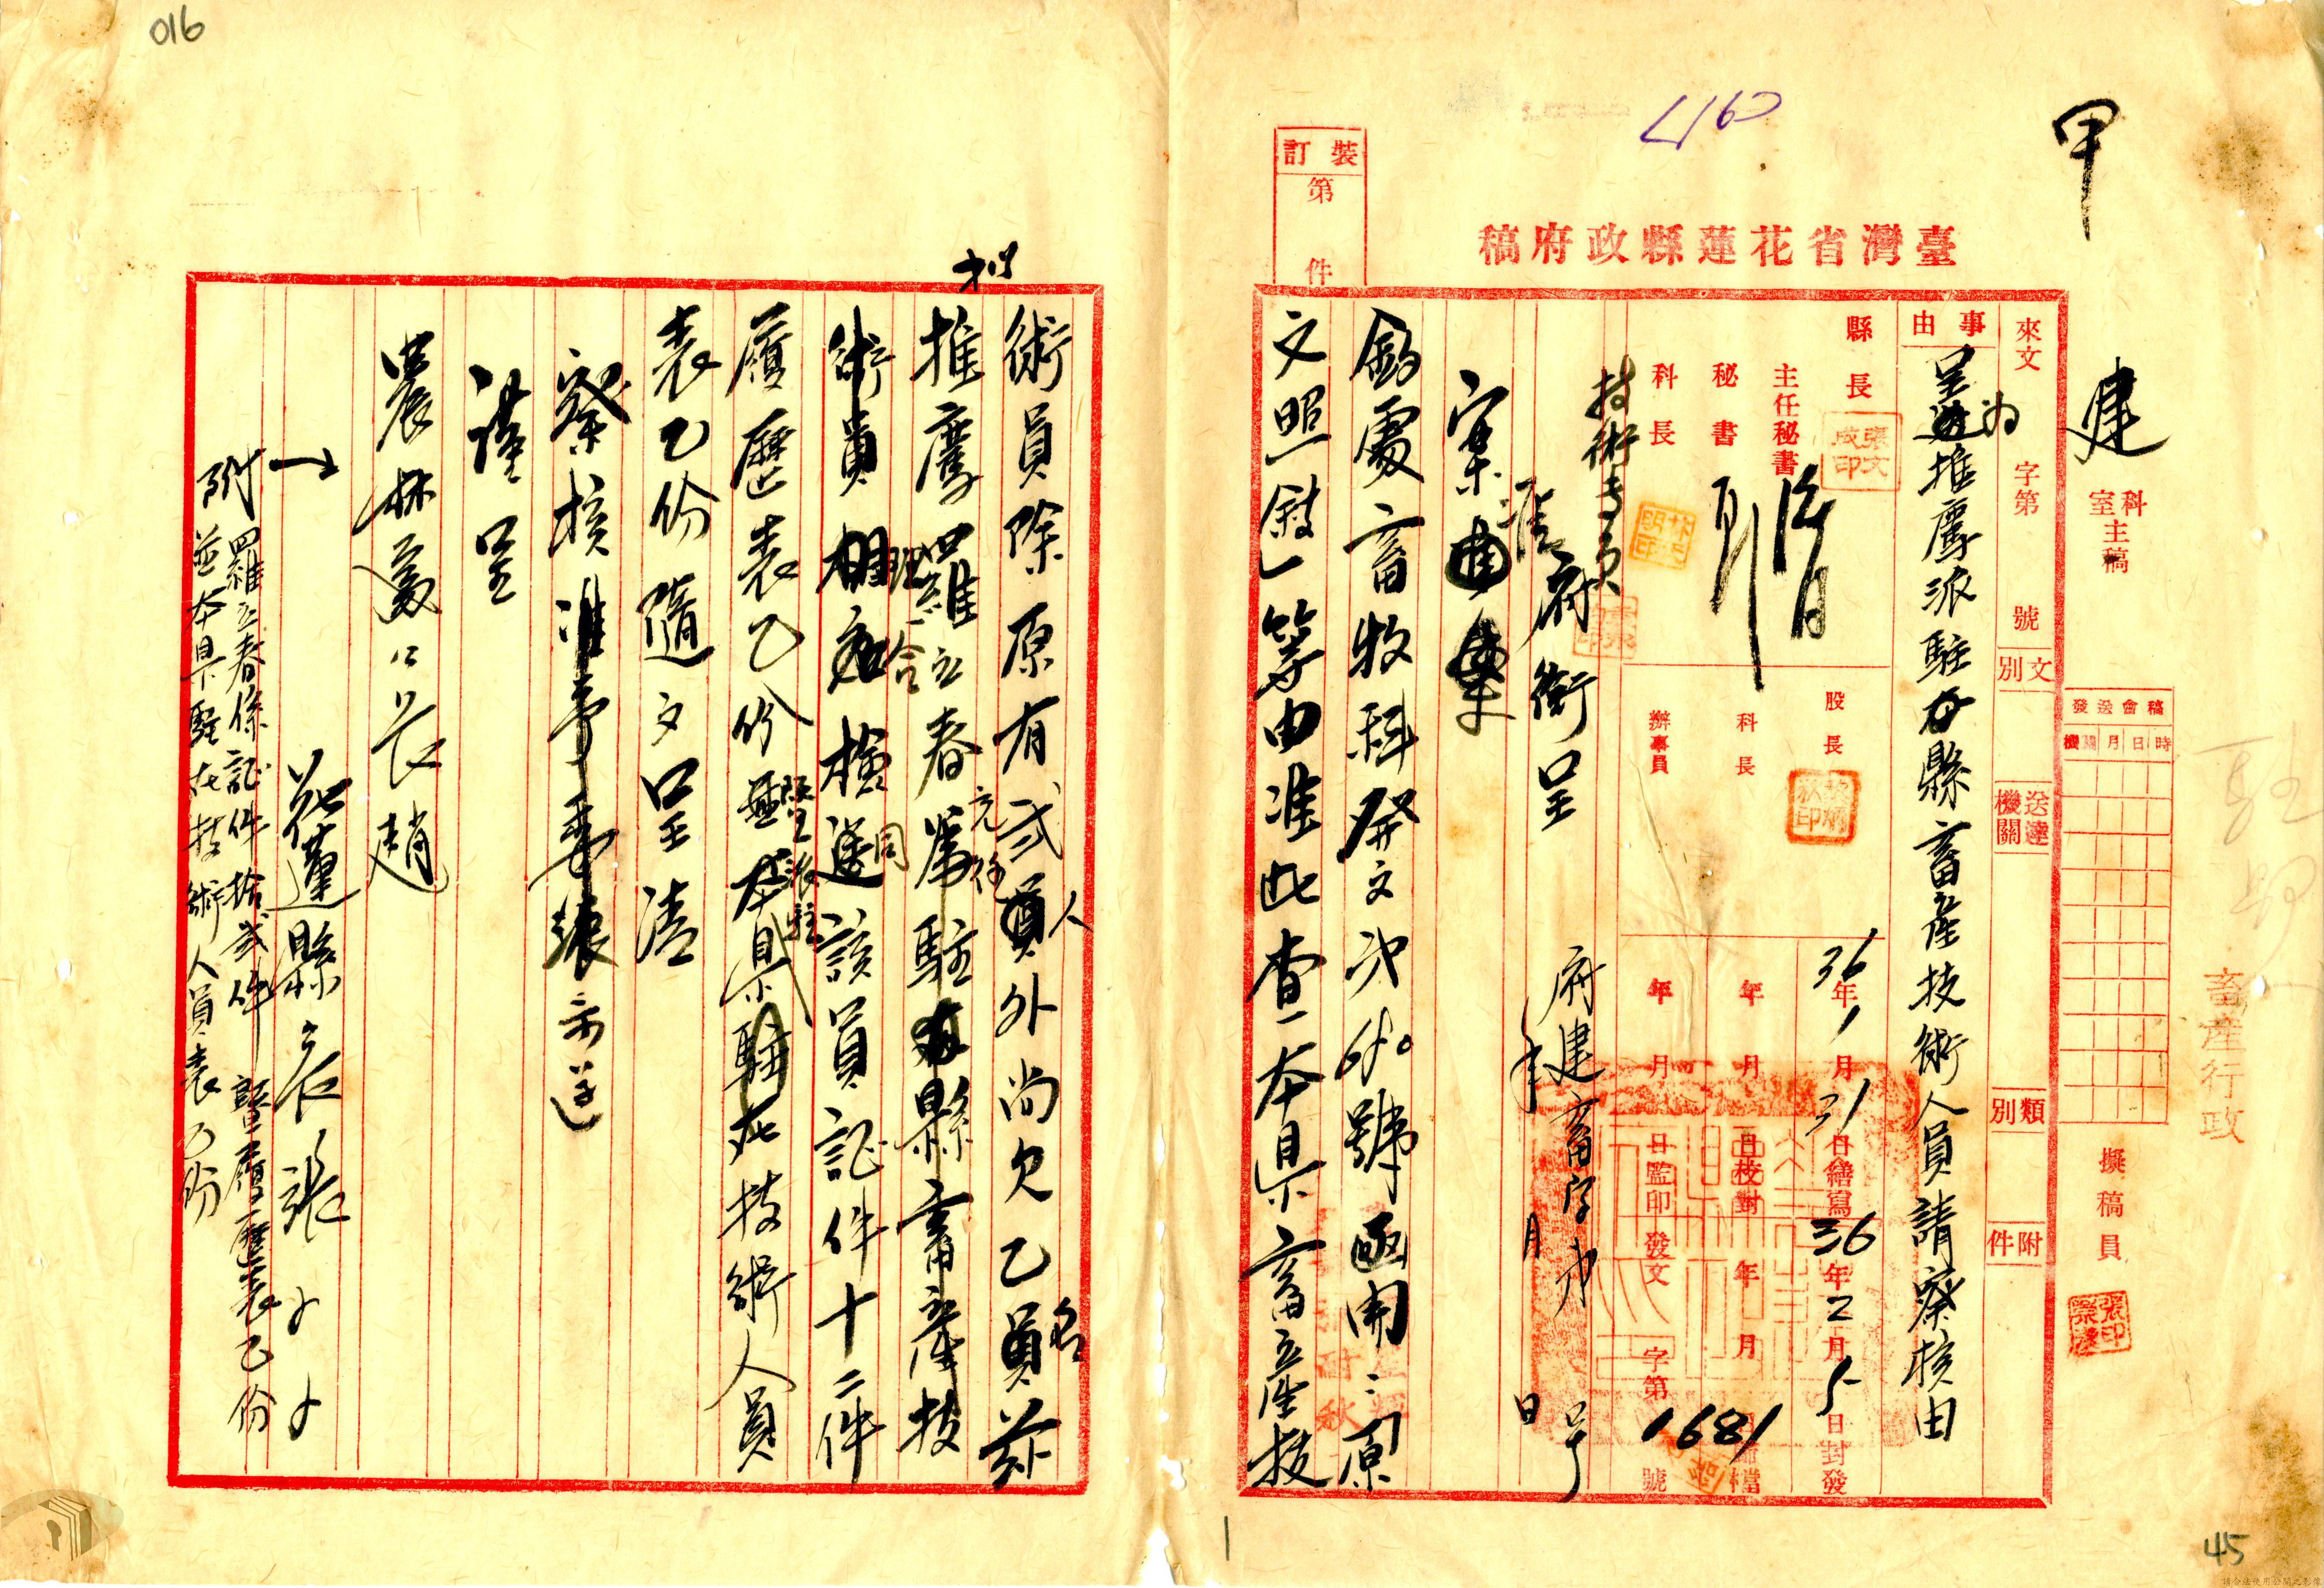 016
45
甲
建
科室主稿
臺灣省花蓮縣政府稿
裝訂
第 件
來文 字第 號
文別
送達機關
類別
附件
擬稿員
稿會送發
時日月機關
畜產行政
事由
呈為推薦派駐本縣畜產技術人員請察核由
縣長
主任秘書
秘書
科長
技術專員
股長
科長
辦事員
36年1月31日繕寫
36年2月5日封發
年 月 日校對
年 月 日歸檔
年 月 日監印
發文 字第1681號
府銜呈
府建畜字第 號
年 月 日
案由
鈞處畜牧科發文 號函開：「原
文照敘」等由准此查本県畜產技
術員除原有弍人外尚欠乙名茲
推薦羅立春充任駐縣畜產技
術員理合檢同該員証件十二件
履歷表乙份暨派駐本県技術人員
表乙份隨文呈請
察核示遵
謹呈
農林處處長趙
花蓮縣縣長張○○
附
羅立春係証件拾弍件 暨履歷表乙份
並本県駐在技術人員表乙份